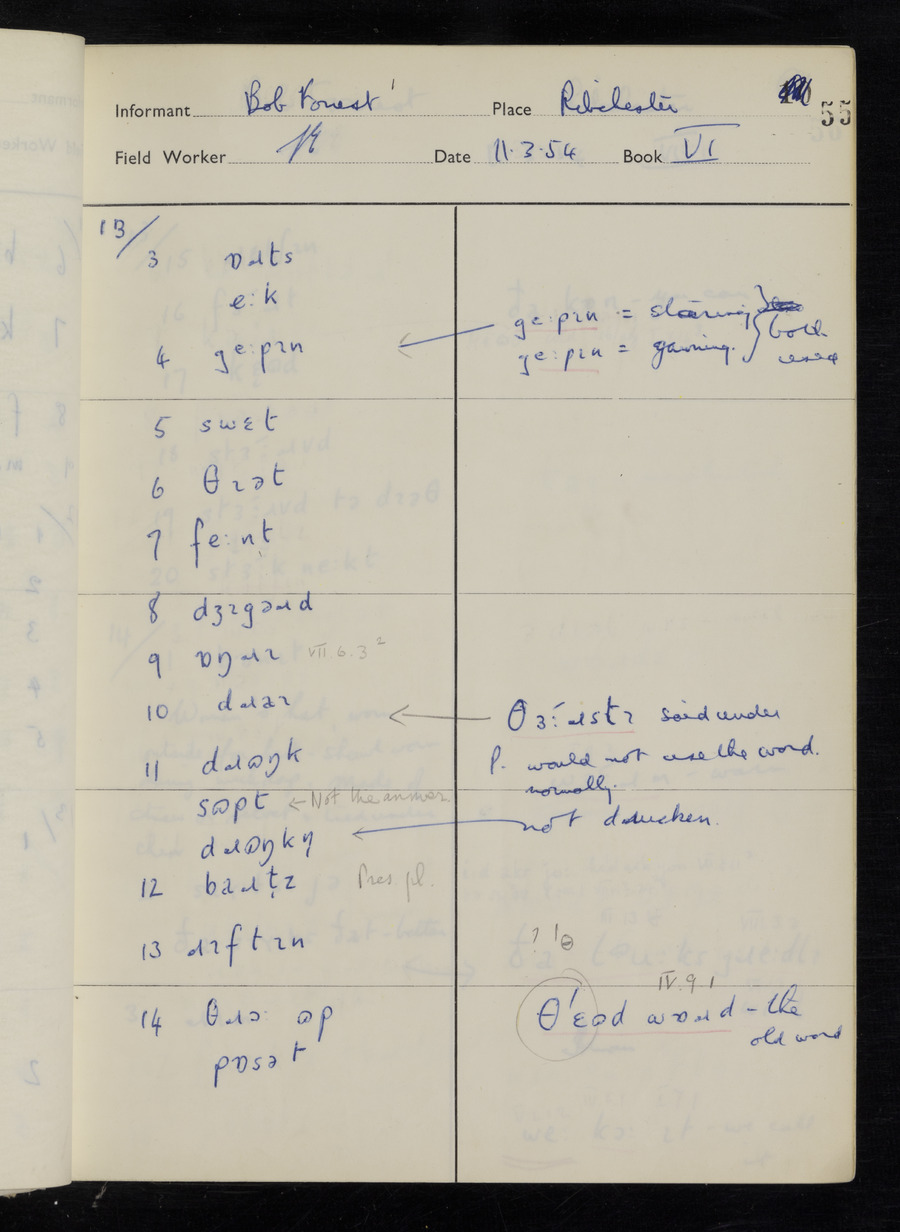 Informant Bob Forrest Place Ribchester 55
Field Worker Date 11.3.54 Book VI
13/
3 ɒɹts
e:k
4 ge:pɪn
ge:pɪn = staring
ge:pɪn = gawning.
both used
5 swɛt
6 θɹɔət
7 fe:nt
8 dʒɪgəɹd
9 ɒŋɡɹɪ VII.6.3²
10 dɹaɪ
θɜ:ɹstɪ said under
P. would not use the word.
normally.
11 dɹʊŋk
sʊpt ← Not the answer.
dɹʊŋkn̩
not drucken.
12 Pres. pl.
13 dɹɪftɪn
14 θɹɔ: ʊp
pɒsət
IV.9.1
– the
old word